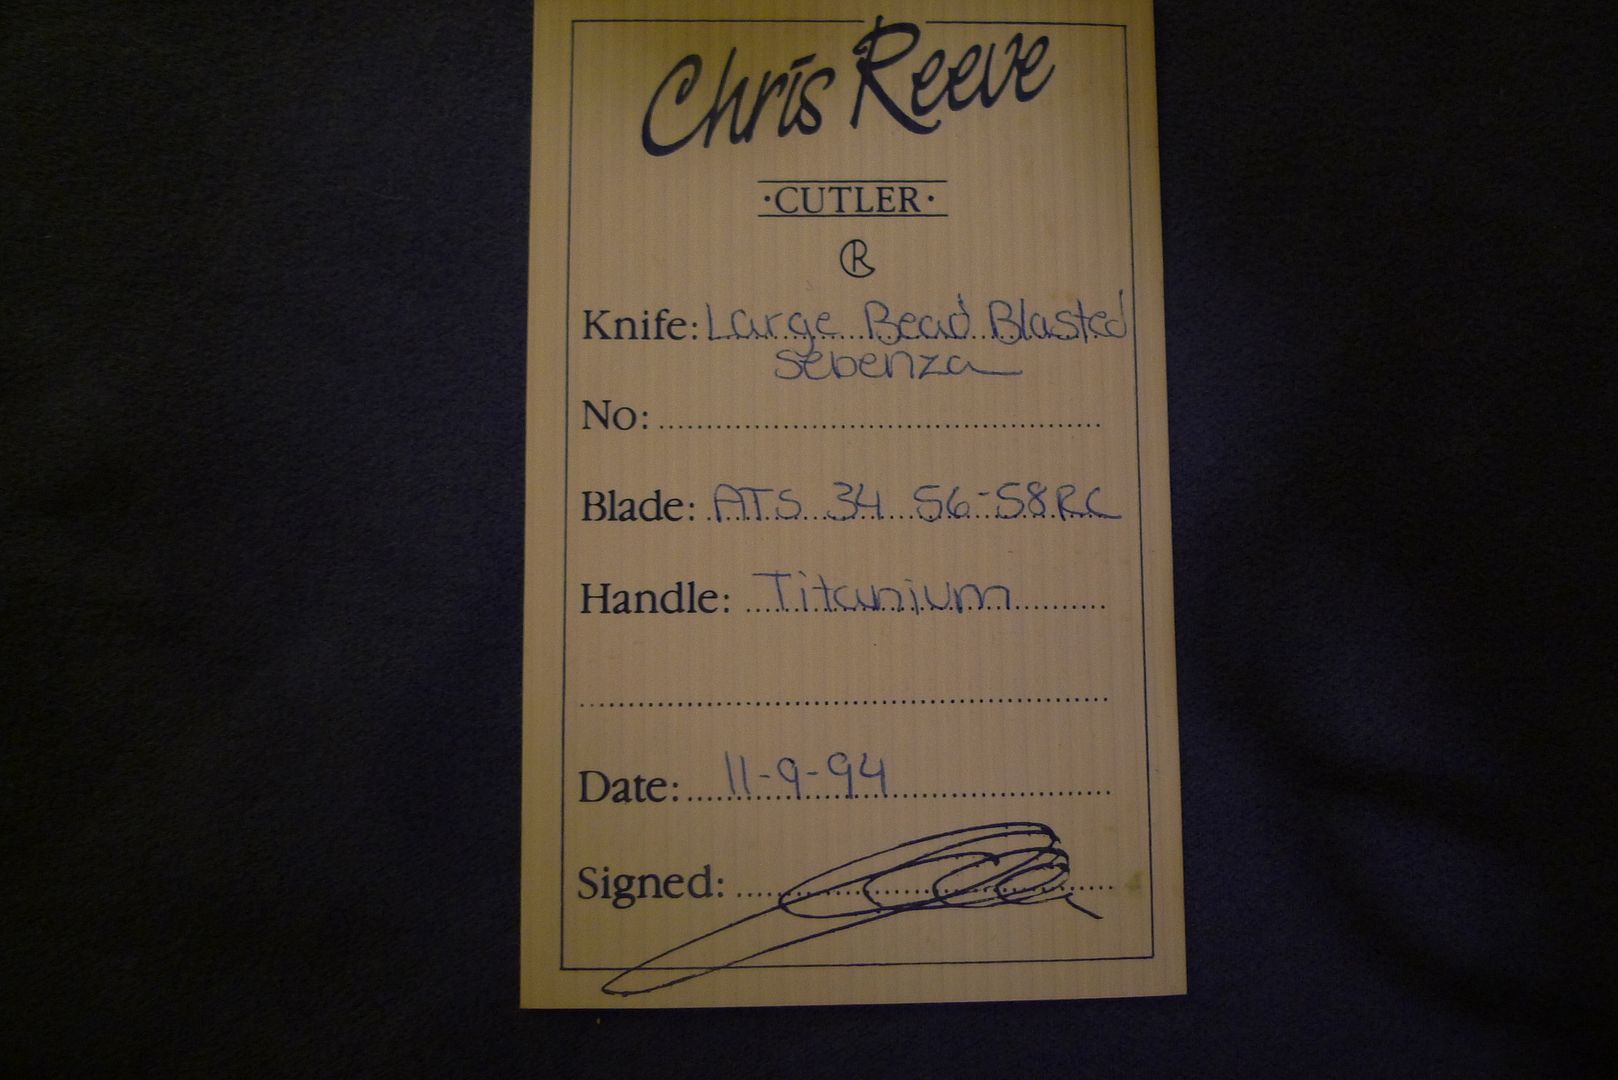 Chris Reeve
·CUTLER·
CR
Knife: Large Bead Blasted
Sebenza
No:
Blade: ATS 34 56-58RC
Handle: Titanium
Date: 11-9-94
Signed: